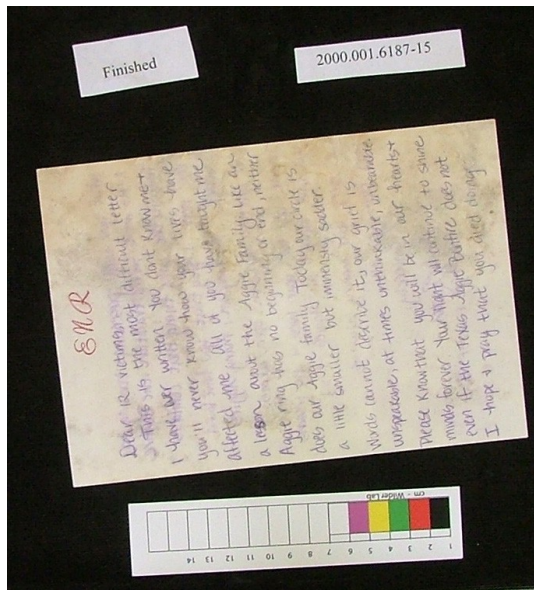 Finished
2000.001.6187-15
EMR
Dear 12 victims,
This is the most difficult letter
I have ever written You dont know me +
you'll never know how your lives have
affected me all of you have taught me
a lesson about the Aggie family Like an
Aggie ring has no beginning or end, neither
does our Aggie family Today our circle is
a little smaller but immensly sadder.
Words cannot describe it, our grief is
unspeakable, at times unthinkable, unbearable.
Please know that you will be in our hearts +
minds forever Your light will continue to shine
even if the Texas Aggie Bonfire does not
I hope + pray that you died doing
cm - Wilder Lab
1 2 3 4 5 6 7 8 9 10 11 12 13 14